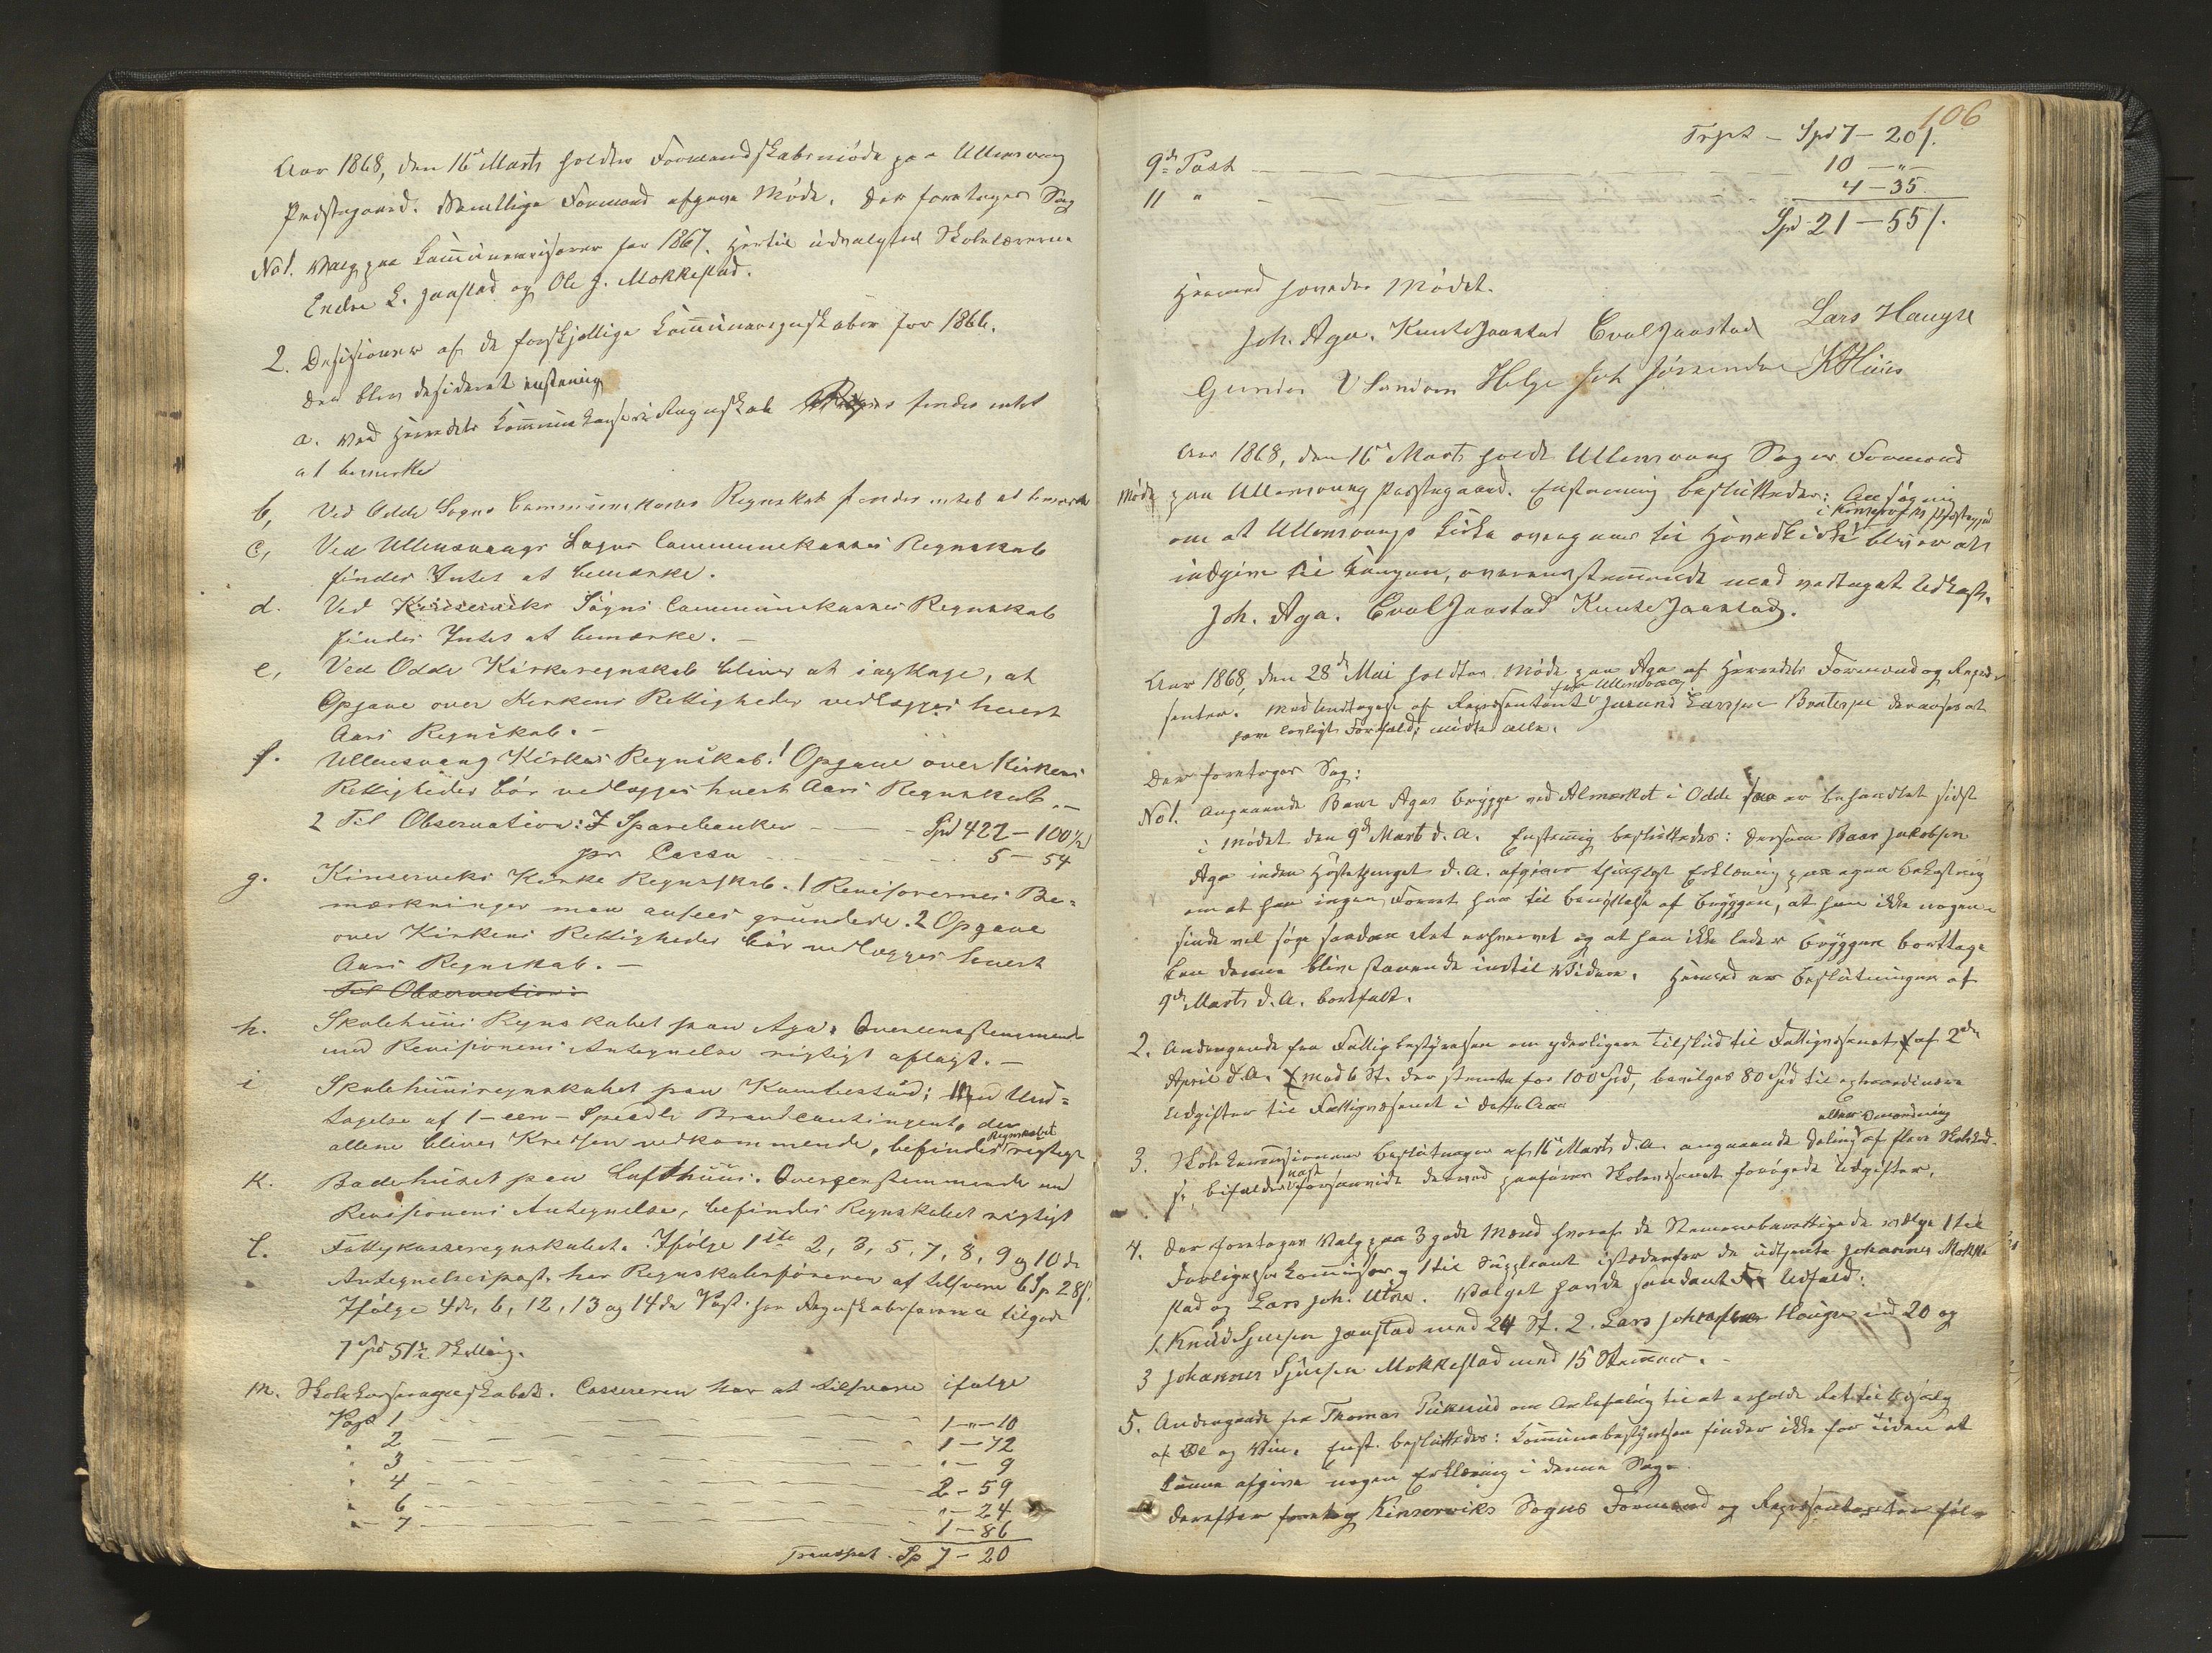 Aar 1868, den 16de Marts holdtes Formandskabsmøde paa Ullensvang
Præstegaard. Samtlige Formænd afgave Møde. Der foretoges Sag
No 1. Valg paa Kommunerevisorer for 1867. Hertil udvalgtes Skolelærerne
Endre L. Jaastad og Ole J. Mokkestad.
2. Desisioner af de forskjellige Kommuneregnskaber for 1866.
Der blev desideret enstemig
a. Ved Herredets Kommunekasse Regnskab findes intet
at bemerke
b, Ved Odde Sogns Communekasses Regnskab findes intet at bemærke
c, Ved Ullensvangs Sogns Communekasses Regnskab
findes Intet at bemærke.
d. Ved Kinserviks Sogns Communekasses Regnskab
findes Intet at bemærke. –
e, Ved Odde Kirkeregnskab bliver at iagttage, at
Opgave over Kirkens Rettigheder vedlægges hvert
Aars Regnskab. –
f. Ullensvang Kirkes Regnskab. 1 Opgave over Kirkens
Rettigheder bør vedlægges hvert Aars Regnskab. –
2 Til Observation: I Sparebanken – – – Spd 422 – 100½
pr Cassa – – – 5 – 54
g. Kinserviks Kirke Regnskab. 1 Revisorernes Be=
mærkninger man ansees grundede. 2 Opgave
over Kirkens Rettigheder bør vedlægges hvert
Aars Regnskab. –
Til Observation:
h. Skolehuus Regnskabet paa Aga. Overeensstemmende
med Revisionens Antegnelse rigtigt aflagt. –
i Skolehuusregnskabet paa Kambestad; Med Und=
tagelse af 1 – een – Speciedlr Brandcontingent, der
allene bliver Kredsen vedkommende, befindes Regnskabet rigtigt
k. Badehuset paa Lofthuus. Overeenstemmende med
Revisionens Antegnelse, befindes Regnskabet rigtigt
l. Fattigkasseregnskabet. Ifølge 1ste 2, 3, 5, 7, 8, 9 og 10de
Antegnelsespost, har Regnskabsføreren at tilsvare 6 Sp 28 s.
Ifølge 4de, 6, 12, 13 og 14de Post har Regnskabsføreren tilgode
7 Spd 51½ Skilling.
m. Skolekasseregnskabet. Cassereren har at tilsvare ifølge
Post 1 – – – 1 – " – 10
" 2 – – – 1 – 72
" 3 – – – " – 9
" 4 – – – 2 – 59
" 6 – – – " – 24
" 7 – – – 1 – 86
Transport. Sp 7 – 20
106
Trpt – Spd 7 – 20 s.
9de Post – – – 10 – " –
11 " – – – 4 – 35
Spd 21 – 55 s.
Hermed hævedes Mødet.
Joh. Aga. Knut Jaastad Evol Jaastad Lars Haugse
Gunder Helge Joh
Aar 1868, den 16de Marts holdt Ullensvang Sogns Formænd
Møde paa Ullensvang Præstegaard. Enstemig besluttedes: Ansøgning
om at Ullensvangs Kirke overgaaer til Hovedkirke i Kinserviks Præstegjeld bliver at
indgive til Kongen, overensstemmende med vedtaget Udkast.
Joh. Aga. Evol Jaastad Knut Jaastad.
Aar 1868, den 28de Mai holdtes Møde paa Aga af Herredets Formænd og Repræ-
senter. Med Undtagelse af Repræsentant fra Ullensvang der ansees at
have lovligt Forfald; mødte alle.
Der foretoges Sag:
No 1. Angaaende Baar Agas Brygge ved Almerket i Odde er behandlet sidst
i Mødet den 9de Marts d. A. Enstemig besluttedes: Dersom Baar Jakobsen
Aga inden Høstethinget d. A. afgiver thinglæst Erklæring paa egen Bekostning
om at han ingen Forret har til Benyttelse af Bryggen, at han ikke nogen-
sinde vil søge saadan Ret erhvervet og at han ikke lader Bryggen borttage
kan denne blive staaende indtil Videre. Hermed er Beslutningen af
9de Marts d. A. bortfaldt.
2. Andragende fra Fattigbestyrelsen om yderligere Tilskud til Fattigvæsenet af 2den
April d. A. med 6 St. der stemte for 100 Spd, bevilges 80 Spd til extraordinære
Udgifter til Fattigvæsenet i dette Aar
3. Skolekommissionens Beslutninger af 16de Marts d. A. angaaende Deling eller Omordning af flere Skolekred-
se, bifaldes forsaavidt derved paaføres Skolevæsenet forøgede Udgifter.
4. Der foretoges Valg paa 3 gode Mænd hvoraf de Stemmeberettigede vælge 1 til
Forligelseskommissær og 1 til Suppleant istedenfor de udtjente Johannes Mokke
stad og Lars Joh. Utne. Valget havde saadant Udfald:
1. Knud Sjursen Jaastad med 24 St. 2. Lars Johannessen Haugse med 20 og
3 Johannes Sjursen Mokkestad med 15 Stemmer. –
5. Andragende fra Thomas om Anbefaling til at erholde Ret til Udsalg
af Øl og Vin. Enst. besluttedes: Kommunebestyrelsen finder ikke for Tiden at
kunne afgive nogen Erklæring i denne Sag.
Derefter foretog Kinserviks Sogns Formænd og Repræsentanter føl-